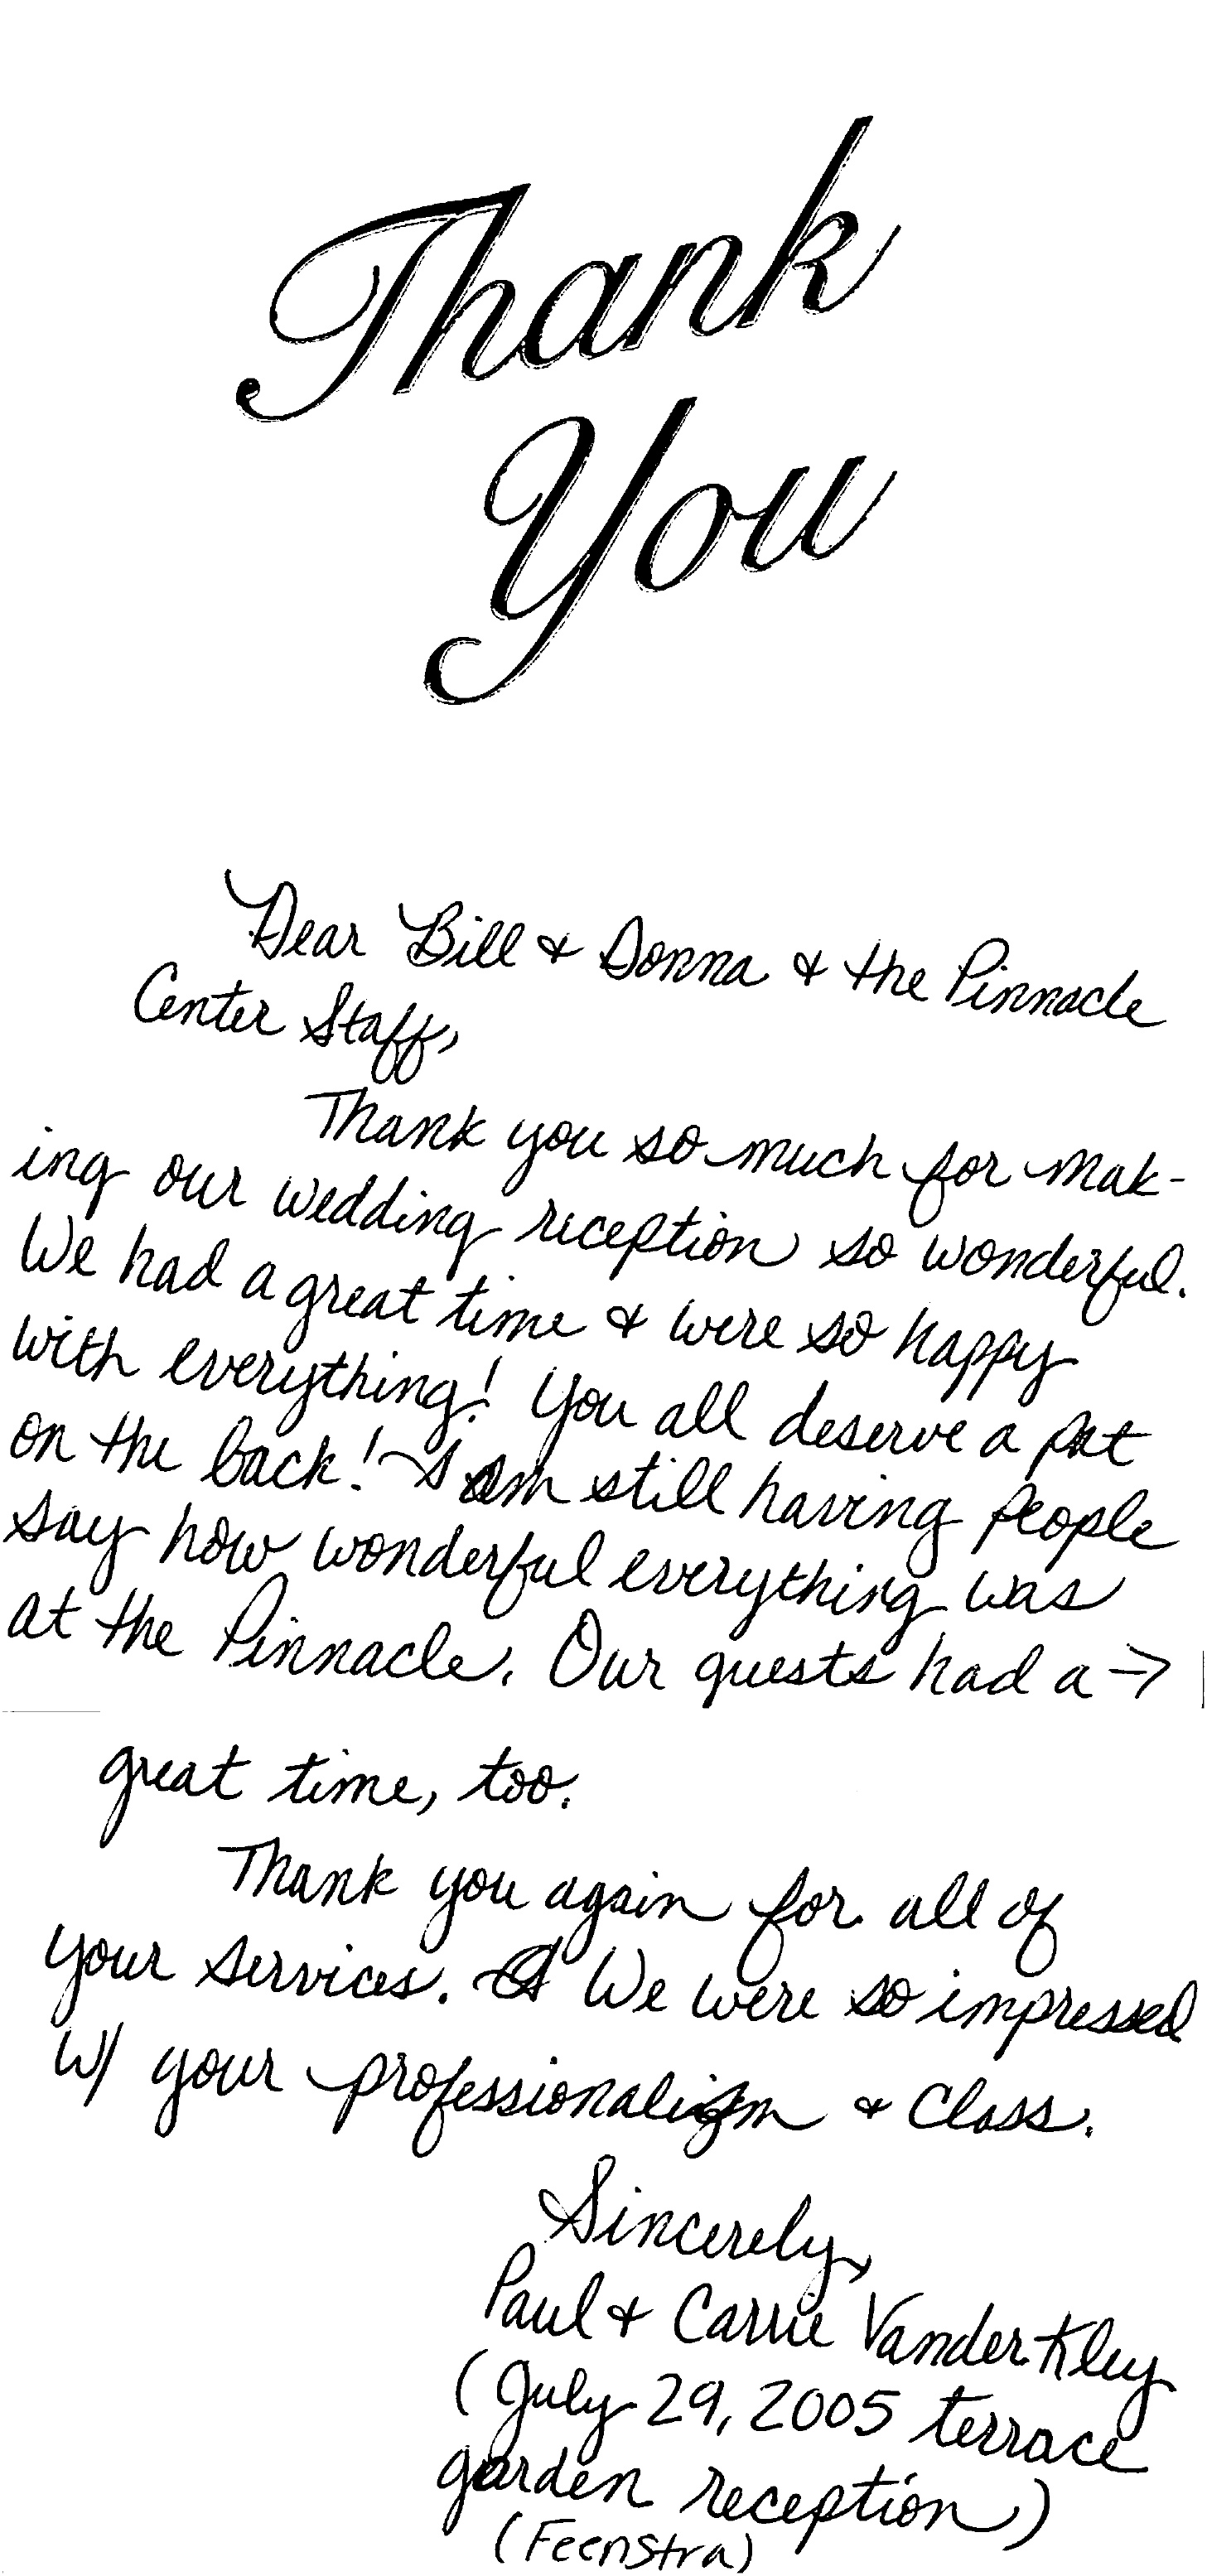 Thank
You
Dear Bill & Donna & the Pinnacle
Center Staff,
Thank you so much for mak-
ing our wedding reception so wonderful.
We had a great time & were so happy
with everything! You all deserve a pat
on the back! I am still having people
say how wonderful everything was
at the Pinnacle. Our guests had a →
great time, too.
Thank you again for all of
your services. We were so impressed
w/ your professionalism & class.
Sincerely,
Paul & Carrie VanderKley
(July 29, 2005 terrace
garden reception)
(Feenstra)